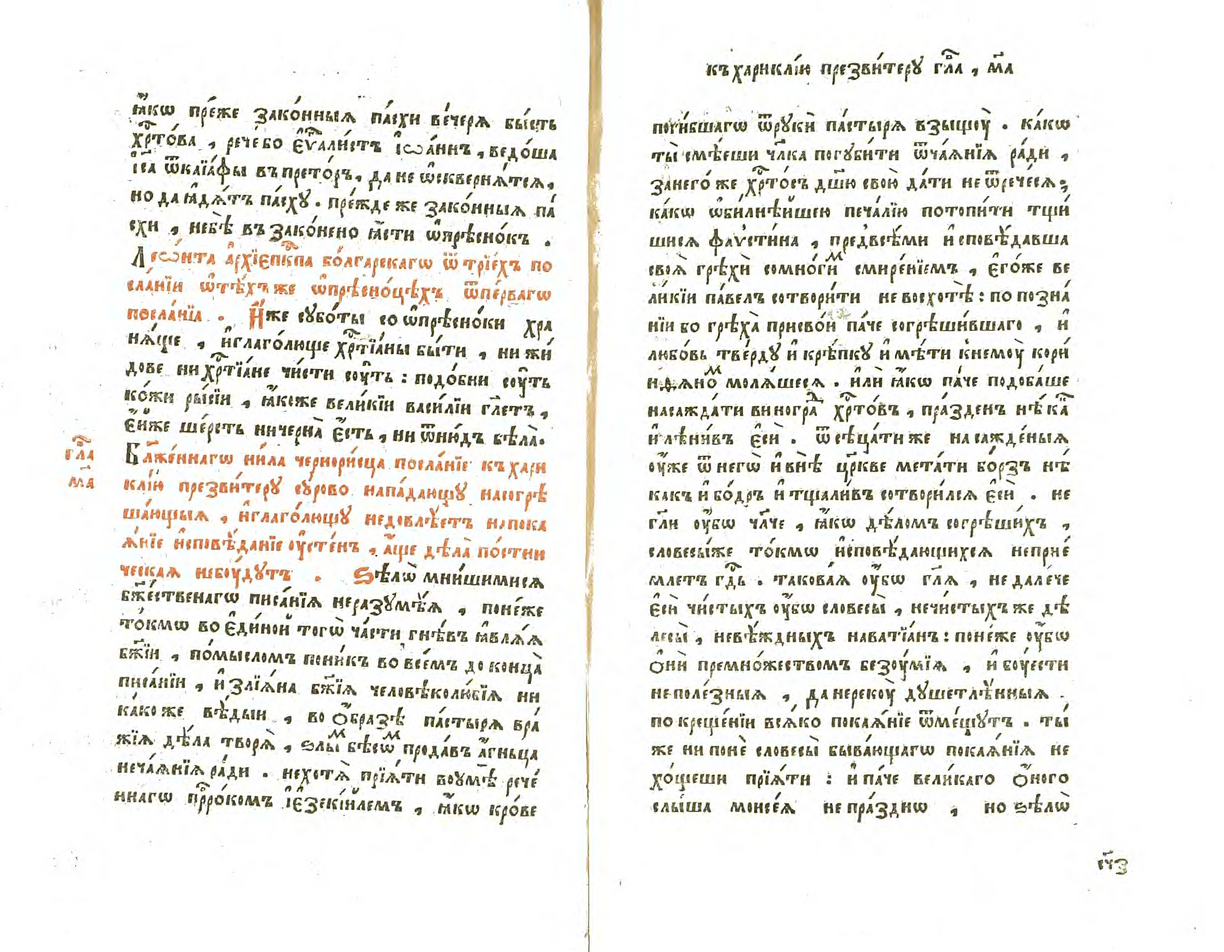 ꙗ҆́кѡ пре́же зако́нныѧ па́схи вече́рѧ бы́сть
хр҇то́ва , рече бо є҆ѵⷢ҇али́стъ і҆ѡа́ннъ , ведо́ша
і҆са ѿ каїа́фы въ прето́ръ , да не ѡ҆сквернѧ́тсѧ ,
но да ꙗ҆дѧ́тъ па́сху . пре́жде же зако́нныѧ па́
схи , небѣ̀ въ зако́нено ꙗ҆́сти ѡ҆прѣсно́къ .
Лео́нта а҆рхїепⷭ҇кпа болга́рскагѡ ѿ трїе́хъ по
сла́нїи ѡ҆ тѣ́хъ же ѡ҆прѣсно́цѣхъ ѿ пе́рвагѡ
посла́нїѧ . И҆́же сꙋбо́ты со ѡ҆прѣсно́ки хра
нѧ́ще , и҆ глаго́люще хр҇тїа́ны бы́ти , ни жи́
дове ни хр҇тїа́не чи́сти сꙋ́ть : подо́бни сꙋ́ть
ко́жи ры́сїи , ꙗ҆́коже вели́кїи васи́лїи гл҃етъ ,
є҆́йже ше́рсть ни черна̀ є҆́сть , ни ѿню́дъ бѣла̀ .
гла҃
м҃а
Блаже́ннагѡ ни́ла черно́рисца посла́нїе къ хари
клі́ю презви́терꙋ сꙋ́рово напа́дающꙋ на согрѣ
ша́ющыѧ , и҆ глаго́лющꙋ недовлѣ́етъ на пока
ѧ́нїе и҆сповѣ́данїе ᲂу҆сте́нъ , а҆́ще дѣла̀ по́стни
ческаѧ не бꙋ́дꙋтъ . Ѕѣлѡ̀ мни́шимисѧ
бжⷭ҇е́ственагѡ писа́нїѧ не разꙋмѣ́ѧ , поне́же
то́кмѡ во є҆ди́ной тогѡ̀ ча́сти гнѣ́въ ꙗ҆влѧ́ѧ
бж҃їи , по́мысломъ пони́къ во все́мъ до конца̀
писа́нїи , и҆злїѧ́на бж҃їѧ человѣколю́бїѧ ни
ка́коже вѣ́дыи , во ѻ҆́бразѣ па́стырѧ вра́
жїѧ дѣ́ла творѧ̀ , ѕлы́мъ бѣсѡ́мъ прода́въ а҆́гньца
неча́ѧнїѧ ра́ди . не хотѧ̀ прїѧ́ти во ᲂу҆мѣ̀ рече́
ннагѡ прⷪ҇ро́комъ і҆езекі́илемъ , ꙗ҆́кѡ кро́ве
къ харикли́ю презви́терꙋ гла҃ , м҃а
поги́бшагѡ ѿ рꙋкѝ па́стырѧ взыщꙋ̀ . ка́кѡ
ты̀ смѣ́еши чл҃ка погꙋби́ти ѿча́ѧнїѧ ра́ди ,
за него́ же хр҇то́съ дш҃ю свою̀ да́ти не ѿрече́сѧ ;
ка́кѡ ѡ҆би́лнѣйшею печа́лїю потопи́ти тщи́
шисѧ фаѵсти́на , пред всѣ́ми и҆сповѣ́давша
своѧ̀ грѣхѝ со мно́гимъ смире́нїемъ , є҆го́же ве
ли́кїи па́велъ сотвори́ти не восхотѣ̀ : по позна́
нїи бо грѣха̀ присво́и па́че согрѣши́вшаго , и҆
любо́вь тве́рдꙋ и҆ крѣ́пкꙋ и҆мѣ́ти к немꙋ̀ кори́
нѳѧ́номъ молѧ́шесѧ . и҆лѝ ꙗ҆́кѡ па́че подоба́ше
насажда́ти виногра́дъ хр҇то́въ , пра́зденъ нѣ́ка́къ
и҆ лѣни́въ є҆сѝ . ѿсѣца́ти же насажде́ныѧ
ᲂу҆́же ѿ него̀ и҆ внѣ̀ цр҃кве мета́ти бо́рзъ нѣ́
какъ и҆ бо́дръ и҆ тщали́въ сотвори́лсѧ є҆сѝ . не
гл҃и ᲂу҆́бѡ чл҃че , ꙗ҆́кѡ дѣ́ломъ согрѣши́хъ ,
словесы́же то́кмѡ и҆сповѣ́дающихсѧ не прїе́
млетъ гдⷭ҇ь . такова́ѧ ᲂу҆́бѡ гл҃ѧ , не дале́че
є҆сѝ чи́стыхъ ᲂу҆́бѡ словесы̀ , нечи́стыхъ же дѣ
лесы̀ , невѣ́ждныхъ навати́анъ : поне́же ᲂу҆́бѡ
ѻ҆́ни премно́жествомъ безꙋ́мїѧ , и҆ бꙋ́ести
неполе́зныѧ , да не рекꙋ̀ дꙋшетлѣ́нныѧ .
по креще́нїи всѧ́ко покаѧ́нїе ѿме́щꙋтъ . ты́
же ни понѐ словесы̀ быва́ющагѡ покаѧ́нїѧ не
хо́щеши прїѧ́ти : и҆ па́че вели́каго ѻ҆́ного
слы́ша моисе́ѧ не пра́зднѡ , но ѕѣлѡ̀